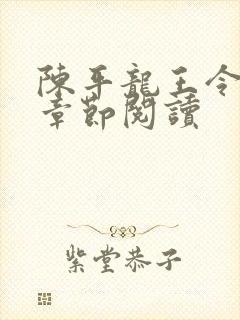 陳平龍王令
章節閱讀
紫堂恭子